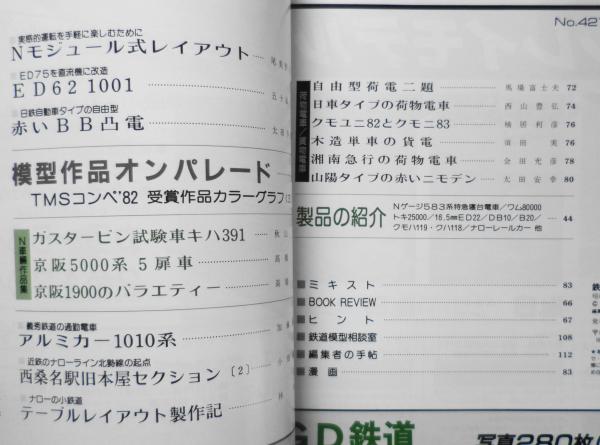 実感的運転を手軽に楽しむために
Nモジュール式レイアウト
ED75を直流機に改造
ED62 1001
日鉄自動車タイプの自由型
赤いBB凸電
模型作品オンパレード
TMSコンペ'82 受賞作品カラーグラフ
N車輌作品集
ガスタービン試験車キハ391
京阪5000系 5扉車
京阪1900のバラエティー
義秀鉄道の通勤電車
アルミカー1010系
近鉄のナローライン北勢線の起点
西桑名駅旧本屋セクション〔2〕
ナローの小鉄道
テーブルレイアウト製作記
No.42
荷物電車/貨物電車
自由型荷電二題 馬場富士夫 72
日車タイプの荷物電車 西山豊弘 74
クモユニ82とクモニ83 橘居利彦 76
木造単車の貨電 須田実 76
湘南急行の荷物電車 金田光彦 78
山陽タイプの赤いニモデン 太田安幸 80
製品の紹介
Nゲージ583系特急寝台電車/ワム80000
トキ25000/16.5㎜ED22/DB10/B20/
クモハ119・クハ118/ナローレールカー 他
44
ミキスト 83
BOOK REVIEW 66
ヒント 67
鉄道模型相談室 108
編集者の手帖 112
漫画 83
GD鉄道
写真280枚